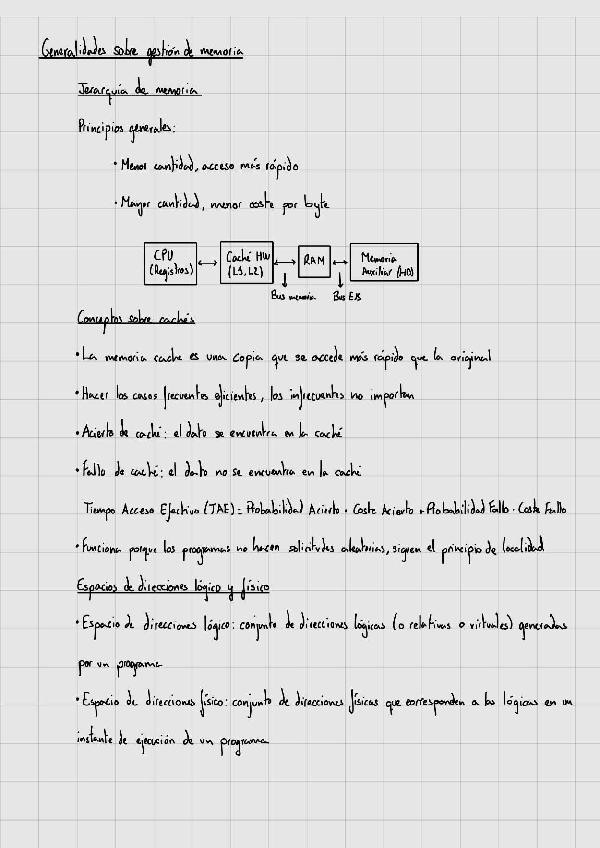 Generalidades sobre gestión de memoria
Jerarquía de memoria
Principios generales:
· Menor cantidad, acceso más rápido
· Mayor cantidad, menor coste por byte
CPU
(Registros)
Caché HW
(L1, L2)
RAM
Memoria
Auxiliar (HD)
Bus memoria
Bus E/S
Conceptos sobre cachés
· La memoria cache es una copia que se accede más rápido que la original
· Hacer los casos frecuentes eficientes, los infrecuentes no importan
· Acierto de caché: el dato se encuentra en la caché
· Fallo de caché: el dato no se encuentra en la caché
Tiempo Acceso Efectivo (TAE) = Probabilidad Acierto · Coste Acierto + Probabilidad Fallo · Coste Fallo
· Funciona porque los programas no hacen solicitudes aleatorias, siguen el principio de localidad
Espacios de direcciones lógico y físico
· Espacio de direcciones lógico: conjunto de direcciones lógicas (o relativas o virtuales) generadas
por un programa
· Espacio de direcciones físico: conjunto de direcciones físicas que corresponden a las lógicas en un
instante de ejecución de un programa